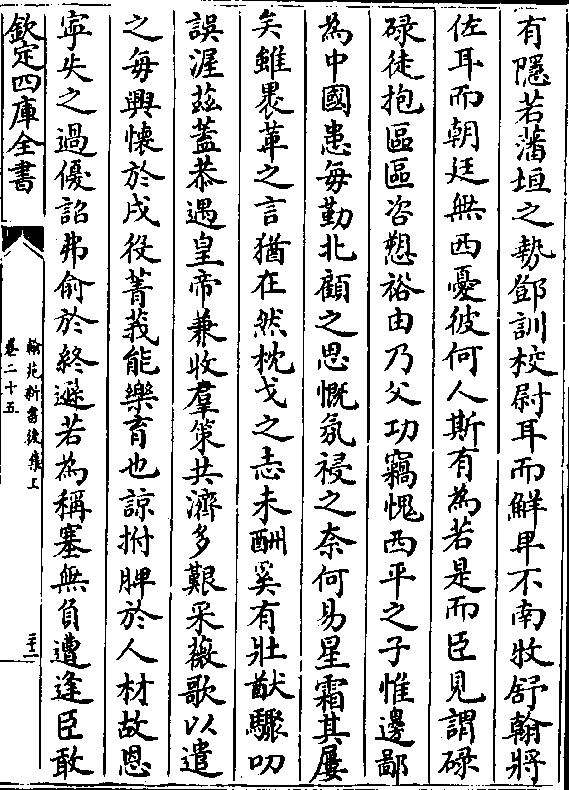 有隱若藩垣之勢鄧訓校尉耳而鮮卑不南牧舒翰將
佐耳而朝廷無西憂彼何人斯有為若是而臣見謂碌
碌徒抱區區咨愬裕由乃父功竊愧西平之子惟邊鄙
為中國患每勤北顧之思慨氛祲之奈何易星霜其屢
矣雖畏革之言猶在然枕戈之志未酬奚有壯猷驟叨
誤渥茲蓋恭遇皇帝兼收羣策共濟多艱采薇歌以遣
之每興懷於戍役菁莪能樂育也諒拊脾於人材故恩
寜失之過優詔弗俞於終遜若為稱塞無負遭逢臣敢
欽定四庫全書
翰苑新書後集上
卷二十五
三十二